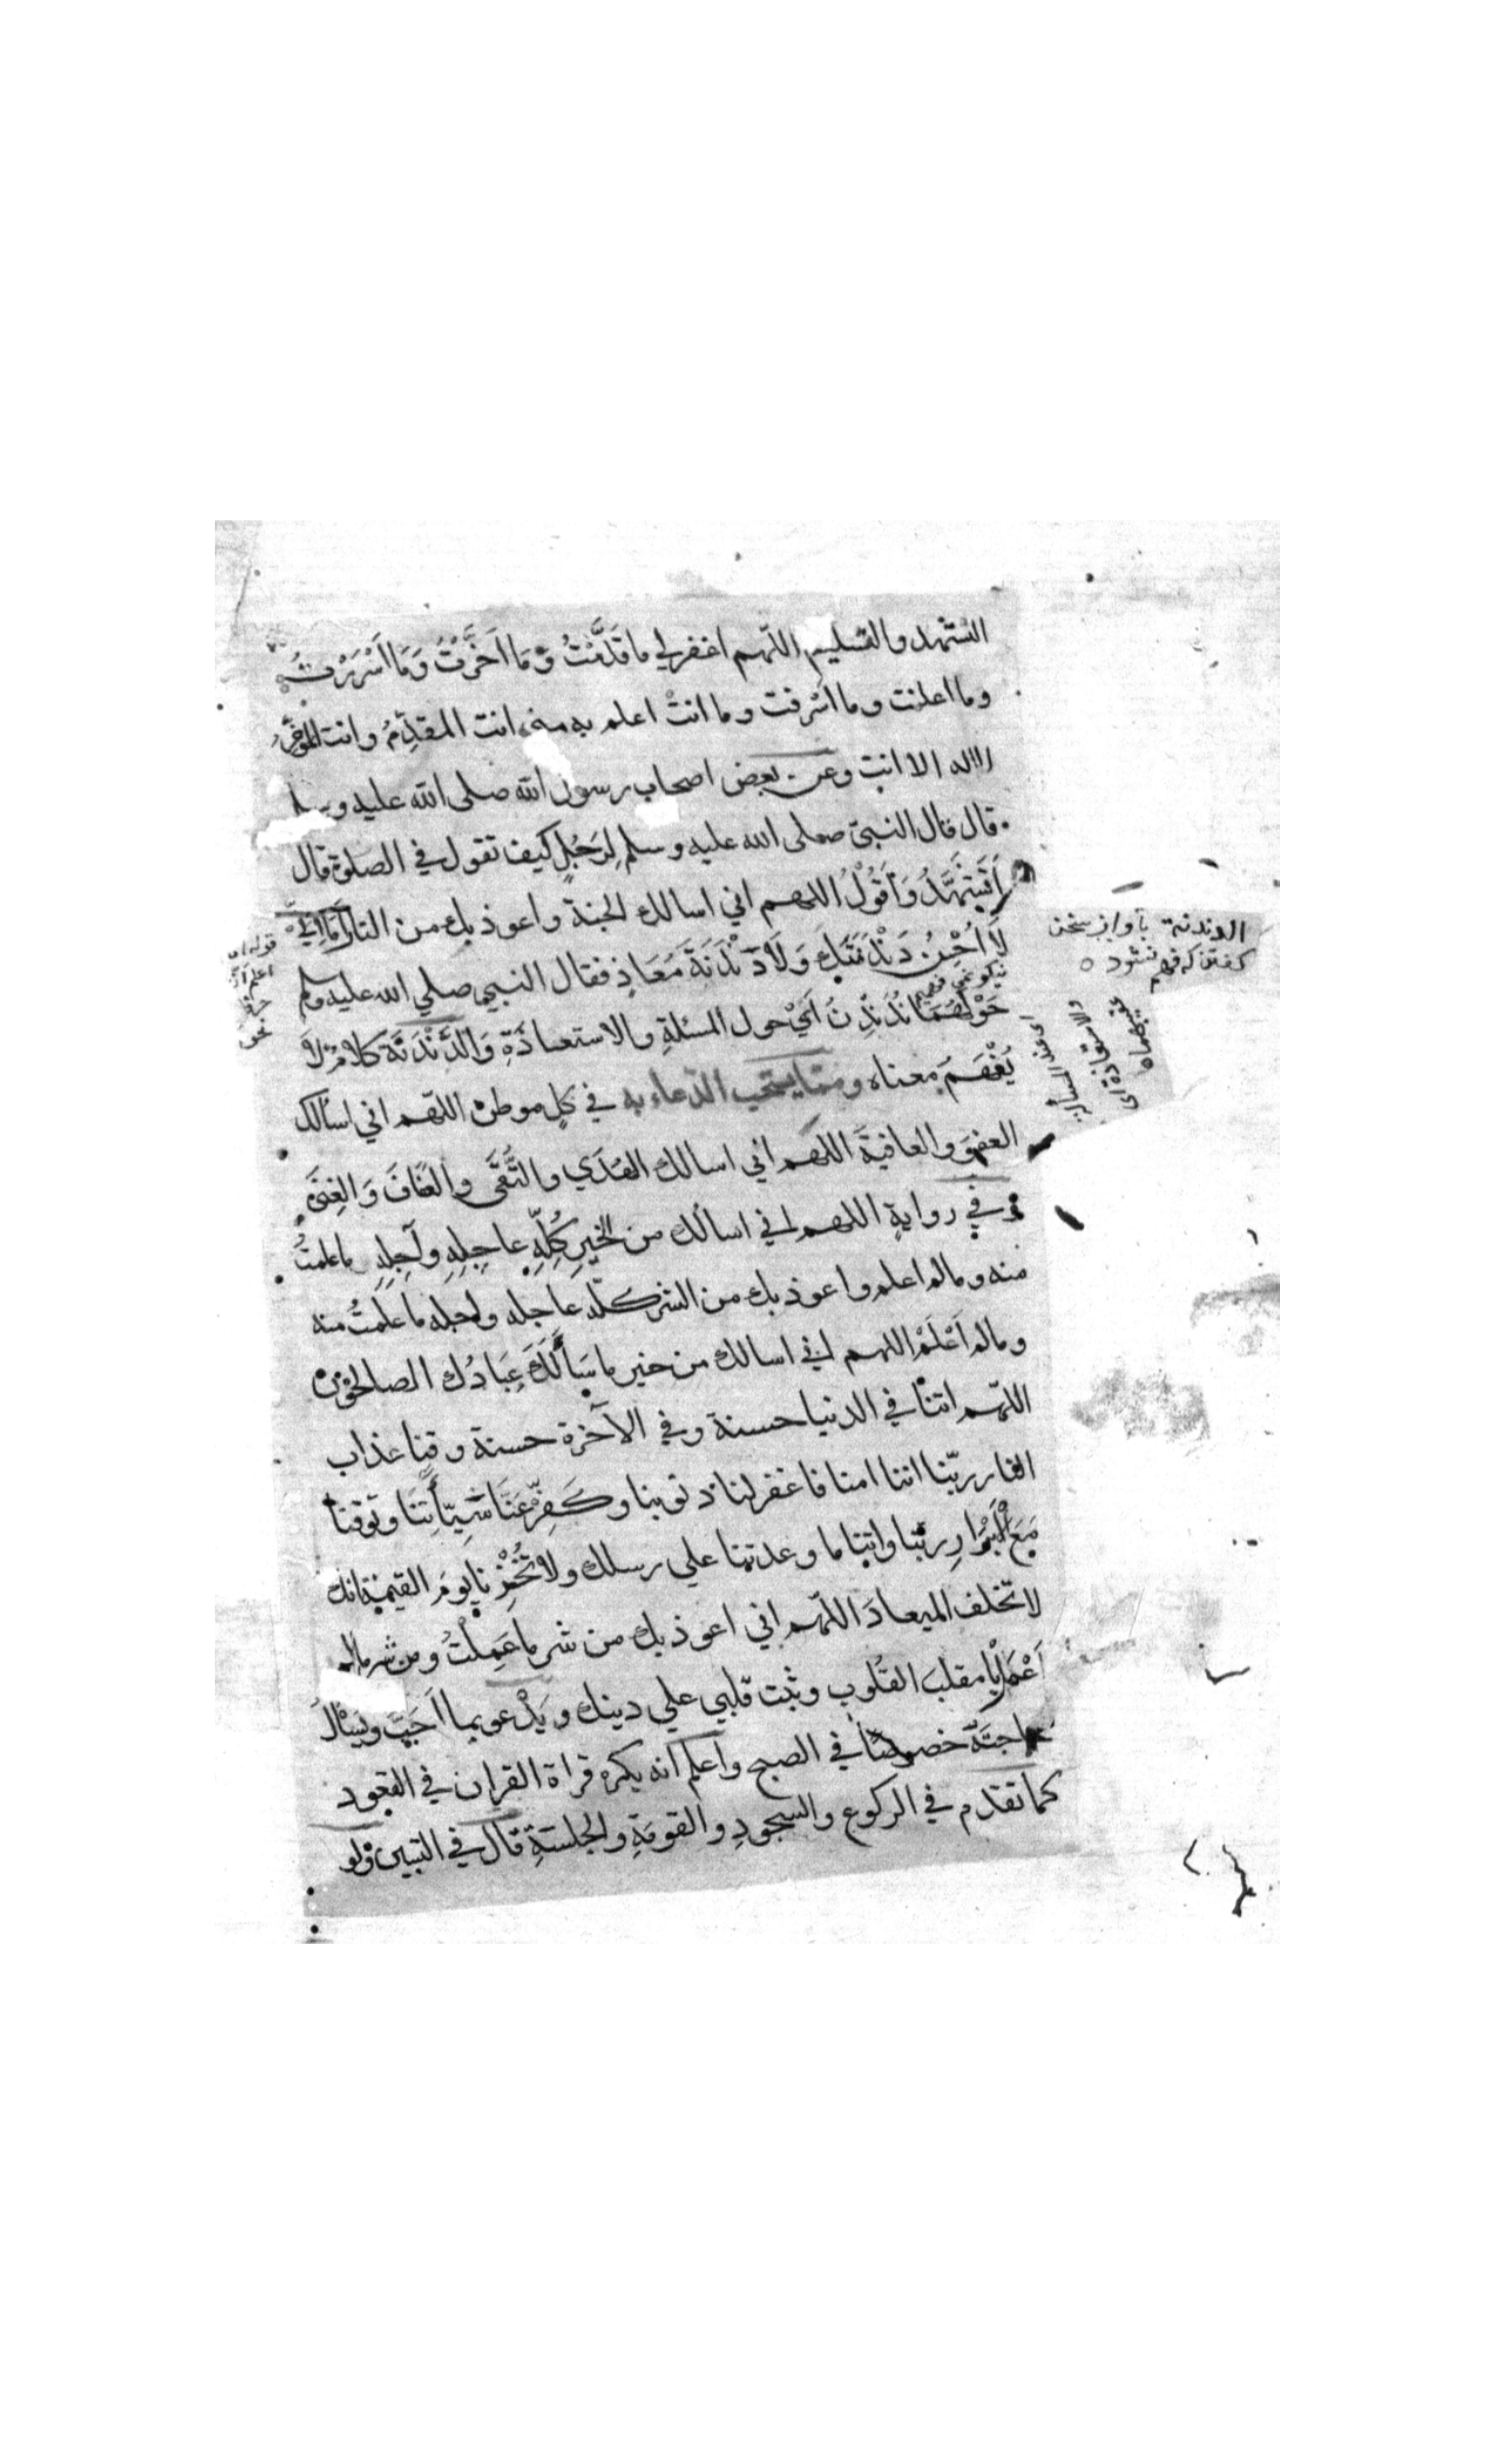 التشهد والتسليم اللّهم اغفر لي ما قَدَّمْتُ وَمَا اَخَّرْتُ وَمَا اَسْرَرْتُ
وما اعلنت وما اسرفت وما انتَ اعلم به مني انت المقدِّمُ وانت المؤخّرُ
لا اله الا انت وعن بعض اصحاب رسول الله صلى الله عليه وسلم
قال قال النبيّ صلى الله عليه وسلم لِرَجُلٍ كيف تقول في الصلوة قال
اَتَشَهَّدُ وَاَقُوْلُ اللهم اني اسالك الجنة واعوذ بك من النار اَمَا اِنِّي
لَا اُحْسِنُ دَنْدَنَتَكَ وَلَا دَنْدَنَةَ مُعَاذٍ فقال النبي صلي الله عليه وسلم
حَوْلَهُمَا نُدَنْدِنُ اَيْ حول المسئلةِ والاستعاذَةِ وَالدَّنْدَنَة كلامٌ لا
يُفْهَمُ معناه وممّا يستحب الدّعاء به في كلِ موطن اللّهم اني اسالك
العفوَ والعافيةَ اللّهم اني اسالك الهُدَي والتُّقَى والعَفَافَ وَالغِنَى
وفي روايةٍ اللهم اني اسالك من الخيرِ كُلِّهِ عاجِلِهِ وآجِلِهِ ما علمتُ
منه وما لم اعلم واعوذ بك من الشر كلّه عاجله واجله ما علِمتُ منه
وما لم اَعْلَمْ اللهم اني اسالك من خير ما سَأَلَكَ عِبَادُك الصالحون
اللّهم اتنا في الدنيا حسنة وفي الآخرة حسنة وقنا عذاب
النار ربّنا اننا امنا فاغفر لنا ذنوبنا وكَفِّرْ عَنَّا سَيِّأتِنَا وتوفنا
مَعَ الْاَبْرَارِ ربّنا واتنا ما وعدتنا علي رسلك ولا تُخْزِنَا يومَ القيمة انك
لا تخلف الميعادَ اللّهم اني اعوذ بك من شر ما عَمِلْتُ ومن شر ما لم
اَعْمَلْ يا مقلبَ القُلُوبِ وثبت قلبي علي دينك ويَدْعو بما اَحَبَّ ويَسْأَلُ
حاجتَهُ خصوصًا في الصبح واعلم انه يكره قراة القران في القعود
كما تقدم في الركوع والسجودِ والقومَةِ والجلسَةِ قال في التبيين ولو
الدندنة بآواز سخن
كفتن كه فهم نشود
اي عند المسألة
والاستعاذة اي